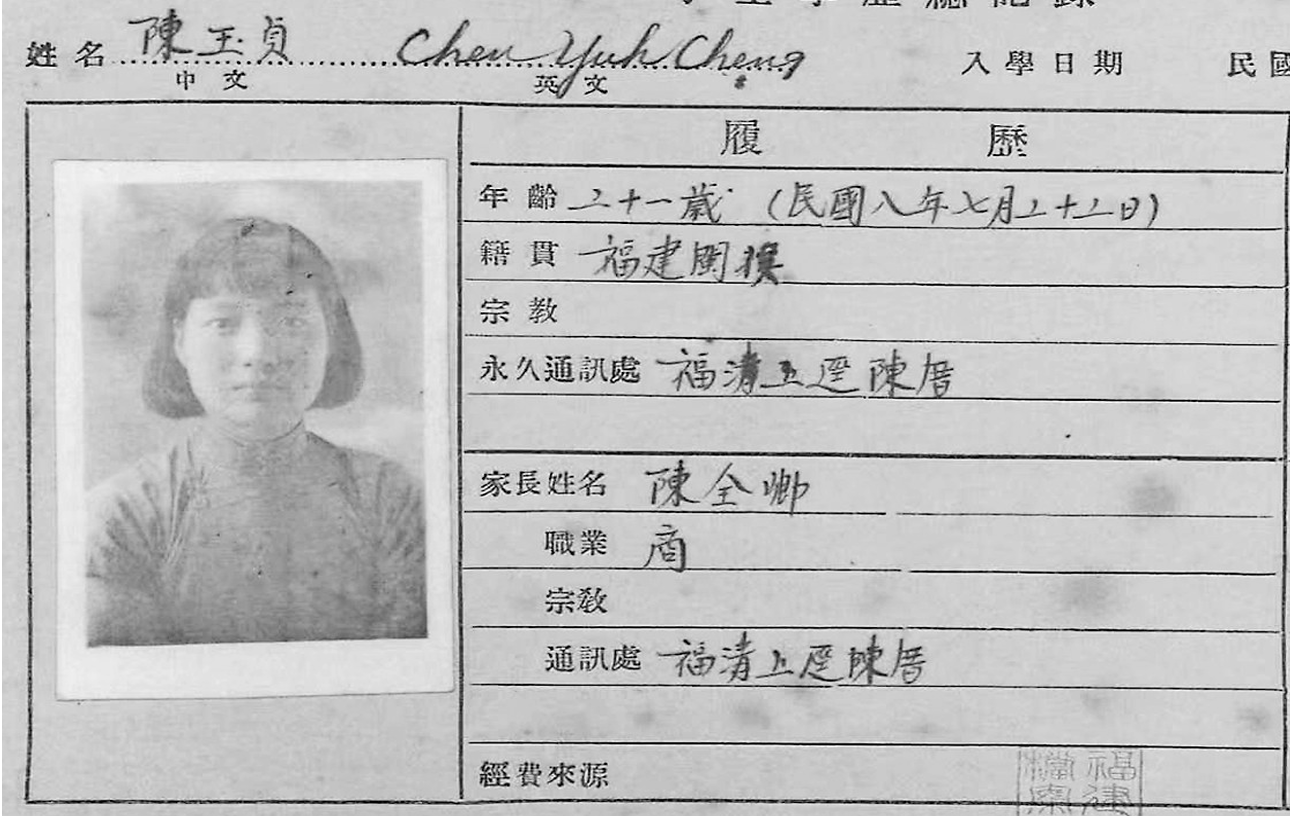 學歷總記錄
姓名 陳玉貞 Chen Yuh Cheng 入學日期 民國
中文 英文
履歷
年齡 二十一歲 (民國八年七月二十二日)
籍貫 福建閩侯
宗教
永久通訊處 福清上逕陳厝
家長姓名 陳全卿
職業 商
宗教
通訊處 福清上逕陳厝
經費來源
福建
檔案